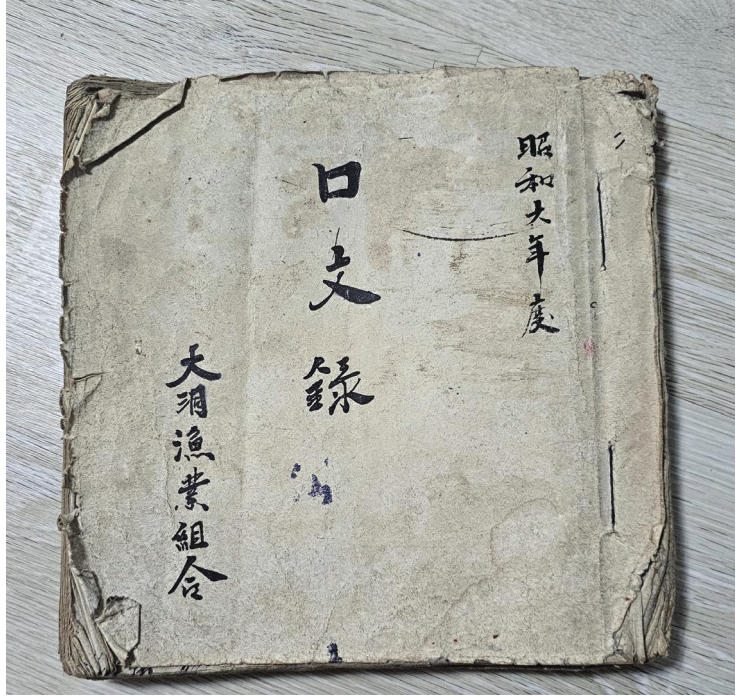 昭和六年度
口文錄
天洞漁業組合